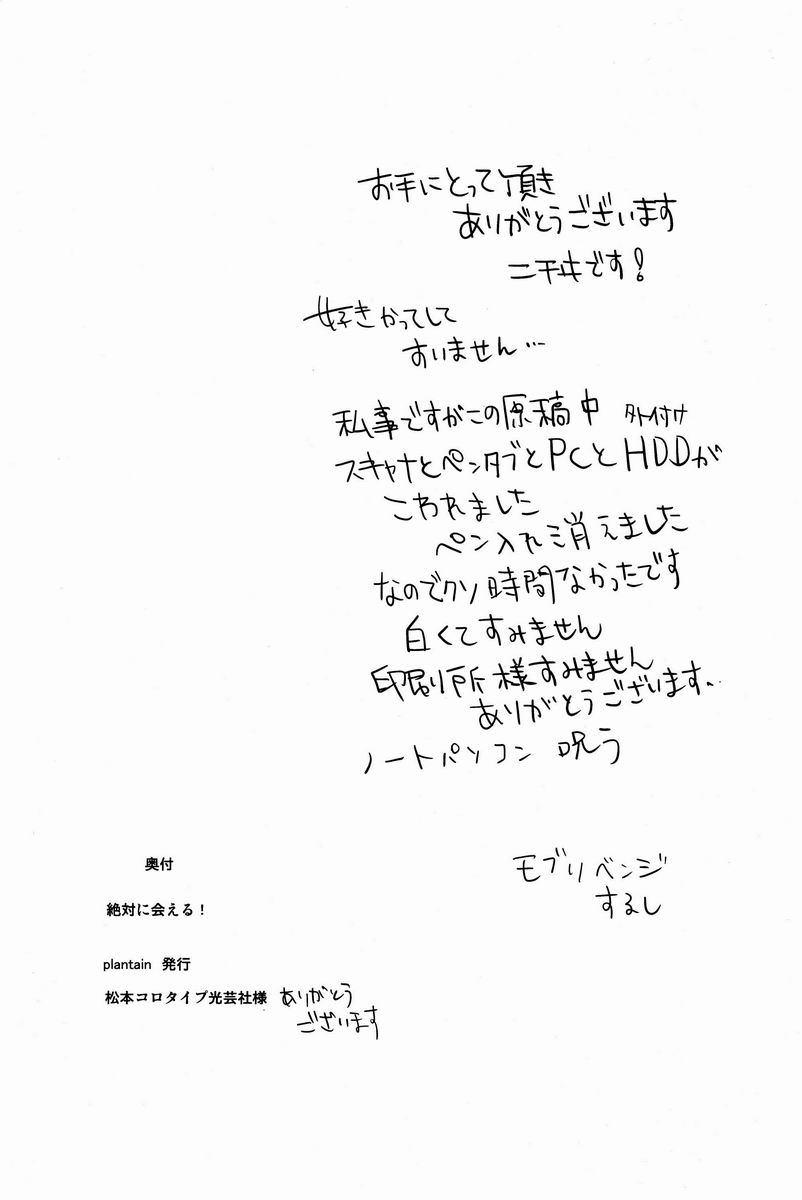 お手にとって頂き
ありがとうございます
二干ヰです!
好きかってして
すいません…
私事ですがこの原稿中 外付け
スキャナとペンタブとPCとHDDが
こわれました
ペン入れ消えました
なのでクソ時間なかったです
白くてすみません
印刷所様すみません
ありがとうございます、、
ノートパソコン 呪う
モブリベンジ
するし
奥付
絶対に会える!
plantain 発行
松本コロタイプ光芸社様 ありがとう
ございます